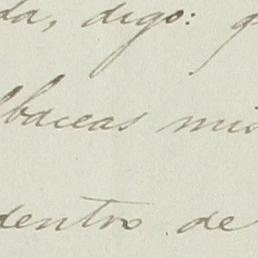 da, digo: q
lbaceas mis
dentro de